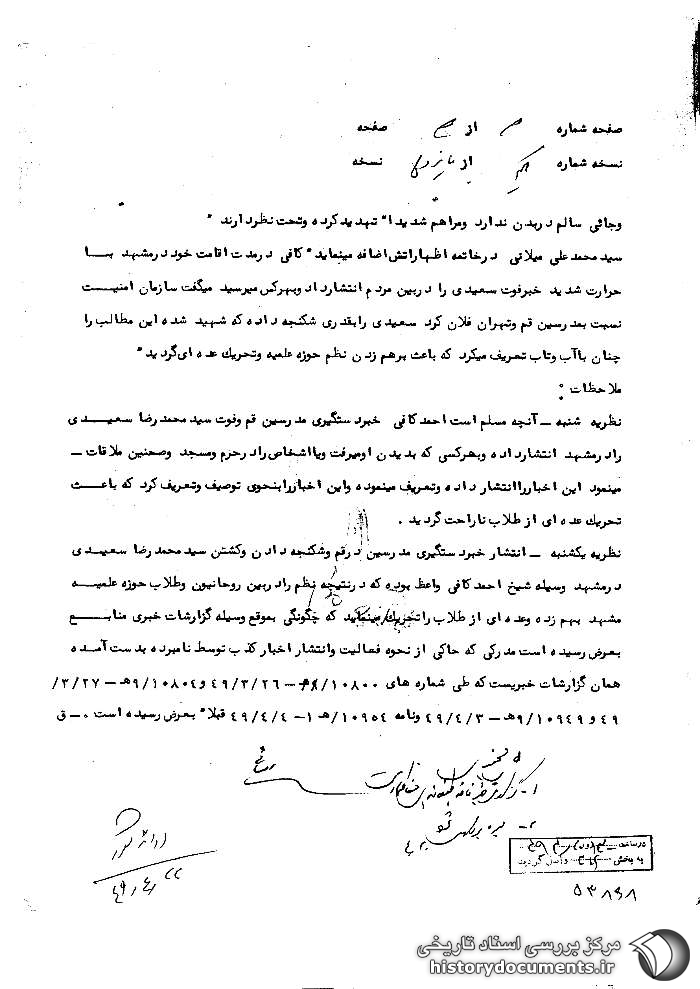 صفحه شماره از صفحه
نسخه شماره از نسخه
وجائی سالم دربدن ندارد ومراهم شدیدا" تهدید کرده وتحت نظردارند "
سید محمدعلی میلانی درخاتمه اظهاراتش اضافه مینماید " کافی درمدت اقامت خود درمشهد با
حرارت شدید خبرفوت سعیدی را دربین مردم انتشارداد وبهرکس میرسید میگفت سازمان امنیت
نسبت بمدرسین قم وتهران فلان کرد سعیدی رابقدری شکنجه داده که شهید شده این مطالب را
چنان باآب وتاب تعریف میکرد که باعث برهم زدن نظم حوزه علمیه وتحریک عده ای گردید "
ملاحظات :
نظریه شنبه ــ آنچه مسلم است احمدکافی خبردستگیری مدرسین قم وفوت سید محمدرضا سعیدی
رادرمشهد انتشارداده وبهرکسی که بدیدن اومیرفت ویااشخاص رادرحرم ومسجد وصحنین ملاقات ــ
مینمود این اخبارراانتشار داده وتعریف مینموده واین اخبارراینحوی توصیف وتعریف کرد که باعث
تحریک عده ای از طلاب ناراحت گردید .
نظریه یکشنبه ــ انتشار خبردستگیری مدرسین درقم وشکنجه دادن وکشتن سید محمدرضا سعیدی
درمشهد وسیله شیخ احمدکافی واعظ بوده که درنتیجه نظم رادربین روحانیون وطلاب حوزه علمیه
مشهد بهم زده وعده ای از طلاب راتحریک مینماید که چگونگی بموقع وسیله گزارشات خبری منابع
بعرض رسیده است مدرکی که حاکی از نحوه فعالیت وانتشار اخبار کذب توسط نامبرده بدست آمده
همان گزارشات خبریست که طی شماره های ۱۰۸۰۰/ ــ ۴۹/۳/۲۶ و ۹/۱۰۸۰۴هـ ــ ۳/۲۷/
۴۹ و ۹/۱۰۹۴۹هـ ــ ۴۹/۴/۳ ونامه ۱۰۹۵۴/هـ ۱ــ ۴۹/۴/۴ قبلا" بعرض رسیده است ۰ ــ ق
۴۹/۴/۲۲
درساعت
به بخش واصل گردید
۵۳۸۹۸
مرکز بررسی اسناد تاریخی
historydocuments.ir